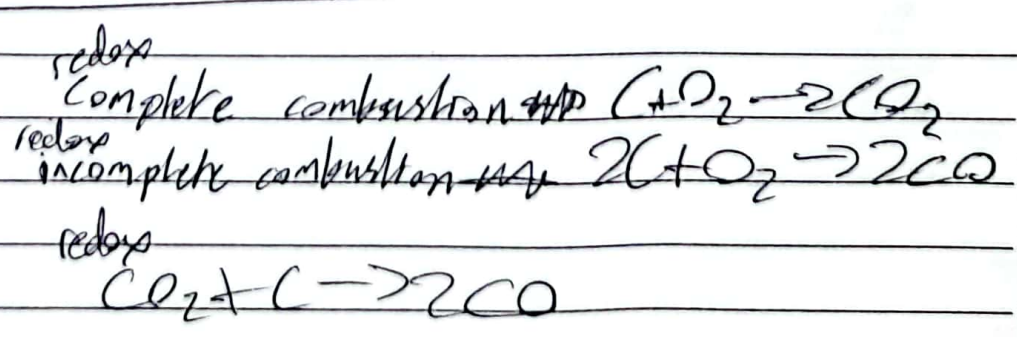 redox
Complete combustion C+O₂→CO₂
redox
incomplete combustion 2C+O₂→2CO
redox
CO₂+C→2CO